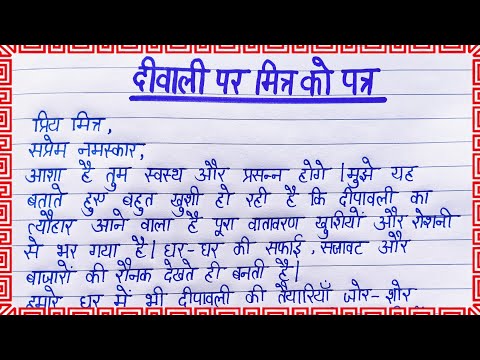 दीवाली पर मित्र को पत्र
प्रिय मित्र,
सप्रेम नमस्कार,
आशा है तुम स्वस्थ और प्रसन्न होगे। मुझे यह
बताते हुए बहुत खुशी हो रही है कि दीपावली का
त्यौहार आने वाला है पूरा वातावरण खुशीयों और रोशनी
से भर गया है। घर-घर की सफाई, सजावट और
बाजारों की रौनक देखते ही बनती है।
हमारे घर में भी दीपावली की तैयारियाँ जोर-शोर